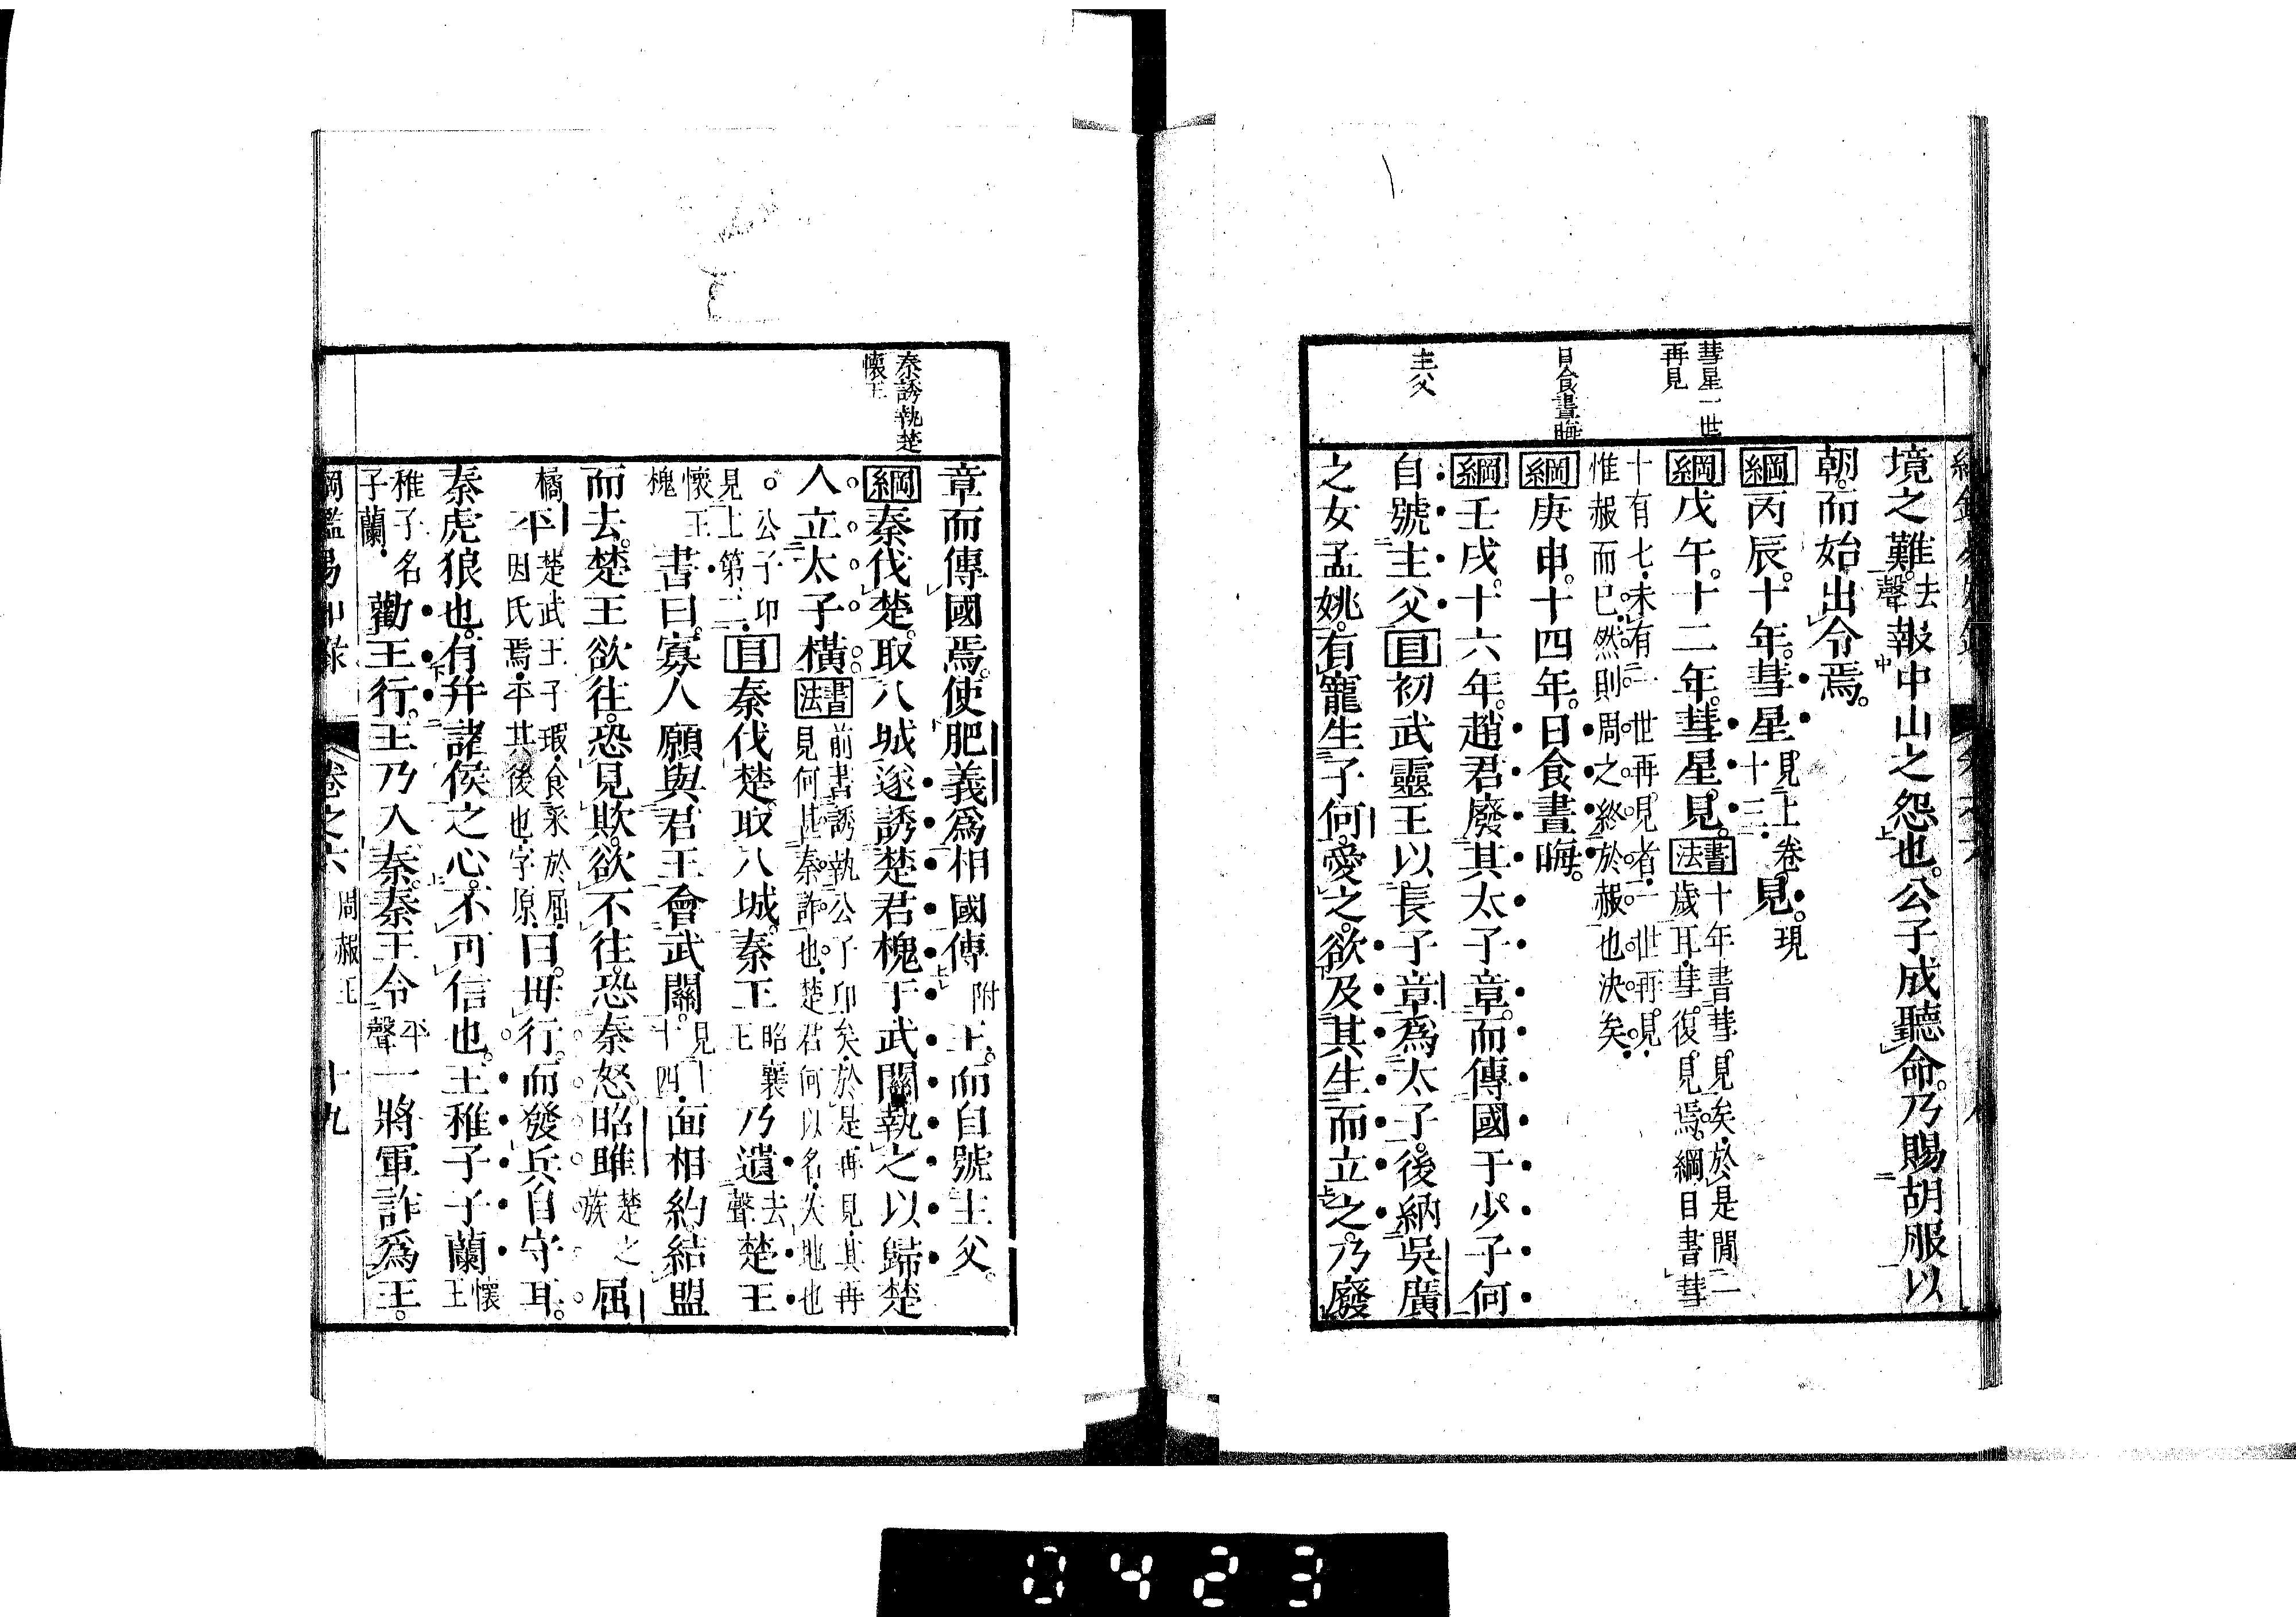 彗星一世
再見
日食晝晦
主父
境之難去聲報中山之怨也。公子成聽命。乃賜胡服以
朝。而始出令焉。
綱丙辰。十年。彗星見上卷十三。見。現
綱戊午。十二年。彗星見。書法十年書彗見矣。於是閒二歲耳。彗復見焉。綱目書彗
十有七。未有一世再見者。一世再見。惟赧而已。然則周之終於赧也決矣。
綱庚申。十四年。日食晝晦。
綱壬戌。十六年。趙君廢其太子章。而傳國于少子何
自號主父。目初武靈王以長子章爲太子。後納吳廣
之女孟姚。有寵。生子何。愛之。欲及其生而立之。乃廢
秦誘執楚
懷王
章而傳國焉。使肥義爲相國傅附王。而自號主父。
綱秦伐楚。取八城。遂誘楚君槐于武關。執之以歸。楚
人立太子橫。書法前書誘執公子卬矣。於是再見。其再見何。甚秦詐也。楚君何以名。失地也
。公子卬見上第二。目秦伐楚。取八城。秦王昭襄王乃遺去聲楚王
懷王。槐書曰。寡人願與君王會武關。見上十四。面相約結盟
而去。楚王欲往。恐見欺。欲不往。恐秦怒。昭睢楚之族屈
橘平楚武王子瑕。食采於屈。因氏焉。平其後也。字原。曰。毋行。而發兵自守耳。
秦虎狼也。有幷諸侯之心。不可信也。王稚子子蘭懷王
稚子名子蘭。勸王行。王乃入秦。秦王令平聲一將軍詐爲王。
綱鑑易知錄 卷之六 周赧王 十九
0423